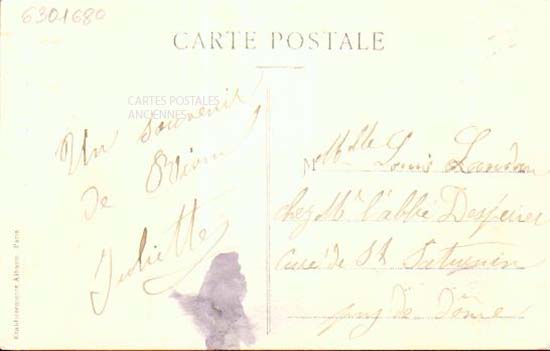 6301680
CARTE POSTALE
CARTES POSTALES
ANCIENNES
Un souvenir
de Riom
Juliette
M Mlle Louis Landon
chez Mr l'abbé Desperier
curé de St Saturnin
puy de Dôme
Etablissements Paris